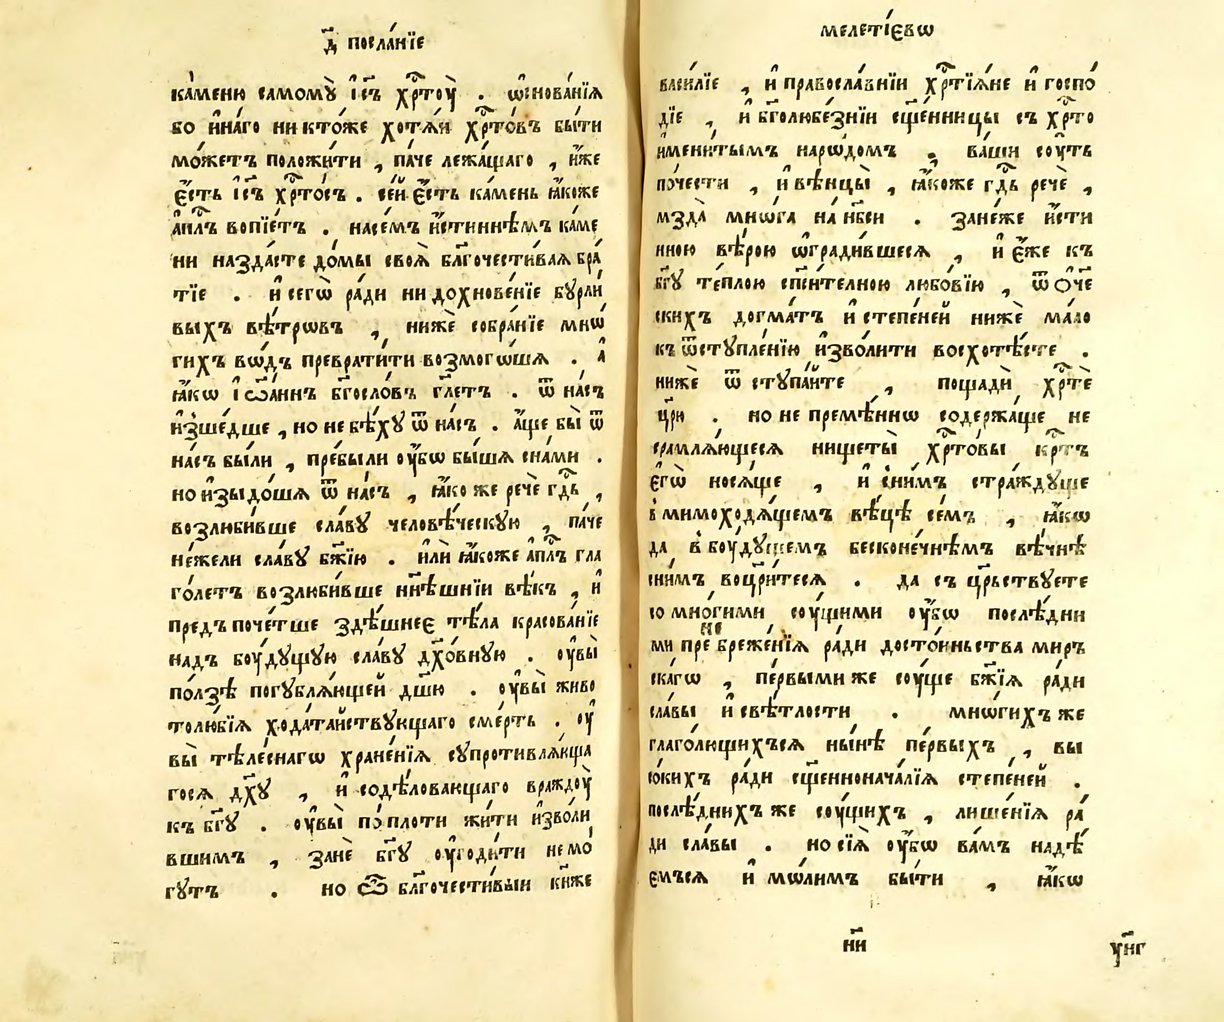 д҃ посла́нїе
ка́меню самомꙋ̀ і҆с҃ъ хрⷭ҇тоу̀ . ѡ҆снова́нїѧ
бо и҆на́го ни кто́же хотѧ́й хрⷭ҇то́въ бы́ти
мо́жетъ положи́ти , па́че лежа́щаго , и҆́же
є҆́сть і҆с҃ъ хрⷭ҇то́съ . се́й є҆́сть ка́мень ꙗ҆́коже
а҆пⷭ҇лъ вопїе́тъ . насе́мъ и҆́стиннѣмъ ка́ме
ниназда́сте до́мы своѧ̀ бл҃гочести́ваѧ бра́
тїе . и҆ сегѡ̀ ра́ди ни дохнове́нїе бꙋрли
выхъ вѣ́трѡвъ , нижѐ собра́нїе мнѡ́
гихъ вѡ́дъ преврати́ти возмого́шѧ . а҆̀
ꙗ҆́кѡ і҆ѡа́ннъ бг҃осло́въ гл҃етъ . ѿ на́съ
и҆зше́дше , но не бѣ́хꙋ ѿ на́съ . а҆́ще бы̀ ѿ
на́съ бы́ли , пребы́ли оу҆́бѡ бы́шѧ сна́ми .
но и҆зыдо́шѧ ѿ на́съ , ꙗ҆́ко же речѐ гдⷭ҇ь ,
возлюби́вше сла́вꙋ человѣ́ческꙋю , па́че
не́жели сла́вꙋ бж҃їю . и҆лѝ ꙗ҆́коже а҆пⷭ҇лъ гла
го́летъ возлюби́вше нн҃ѣшнїи вѣ́къ , и҆
предъ поче́тше здѣ́шнеє тѣ́ла красова́нїе
надъ боу́дꙋщꙋю сла́вꙋ дх҃о́внꙋю . оу҆вы̀
по́лзѣ погꙋблѧ́ющей дш҃ю . оу҆вы̀ живо
толю́бїѧ хода́тайствꙋющаго сме́рть . оу҆
вы̀ тѣле́снагѡ хране́нїѧ сꙋпротивлѧ́юща
госѧ дх҃ꙋ , и҆ содѣ́ловающаго враждоу̀
къ бг҃ꙋ . оу҆вы̀ по пло́ти жи́ти и҆зво́ли
вшимъ , занѐ бг҃ꙋ оу҆годи́ти не мо́
гꙋтъ . но ѽ бл҃гочести́выи кн҃же
мелеті́євѡ
васи́лїе , и҆ правосла́внїи хрⷭ҇тїѧ́не и҆ госпо́
дїе , и҆ бг҃олюбе́знїи сщ҃е́нницы съ хрⷭ҇то
и҆мени́тымъ наро́дѡмъ , ва́ши соу́ть
по́чести , и҆ вѣнцы̀ , ꙗ҆́коже гдⷭ҇ь речѐ ,
мзда̀ мнѡ́га на нб҃си . зане́же и҆́сти
нною вѣ́рою ѡ҆гради́вшесѧ , и҆ є҆́же къ
бг҃ꙋ те́плою сп҃си́телною любо́вїю , ѿ ѻ҆́че
скихъ догма́тъ и҆ степе́ней нижѐ ма́ло
къ ѿстꙋпле́нїю и҆зво́лити восхотѣ́сте .
нижѐ ѿ стꙋпа́йте , пощадѝ хрⷭ҇тѐ
цр҃ю . но не премѣ́ннѡ содержа́ще не
срамлѧ́ющесѧ нищеты̀ хрⷭ҇то́вы крⷭ҇тъ
є҆гѡ̀ носѧ́ще , и҆ сни́мъ стра́ждꙋще
в҆ мимоходѧ́щемъ вѣ́цѣ се́мъ , ꙗ҆́кѡ
да в҆ боу́дꙋщемъ бесконе́чнѣмъ вѣ́чнѣ
сни́мъ воцр҃и́тесѧ . да съ црⷭ҇твꙋете
со мно́гими соу́щими оу҆́бѡ послѣ́дни
ми пренебреже́нїѧ ра́ди досто́иньства миръ
скагѡ , пе́рвыми же соу́ще бж҃їѧ ра́ди
сла́вы и҆ свѣ́тлости . мнѡ́гихъ же
глаго́лющихъсѧ ны́нѣ пе́рвыхъ , вы
со́кихъ ра́ди сщ҃еннонача́лїѧ степе́ней .
послѣ́днихъ же соу́щихъ , лише́нїѧ ра́
ди сла́вы . но сїѧ̀ оу҆́бѡ ва́мъ надѣ́
емъсѧ и҆ мо́лимъ бы́ти , ꙗ҆́кѡ
ни҃
ун҃г